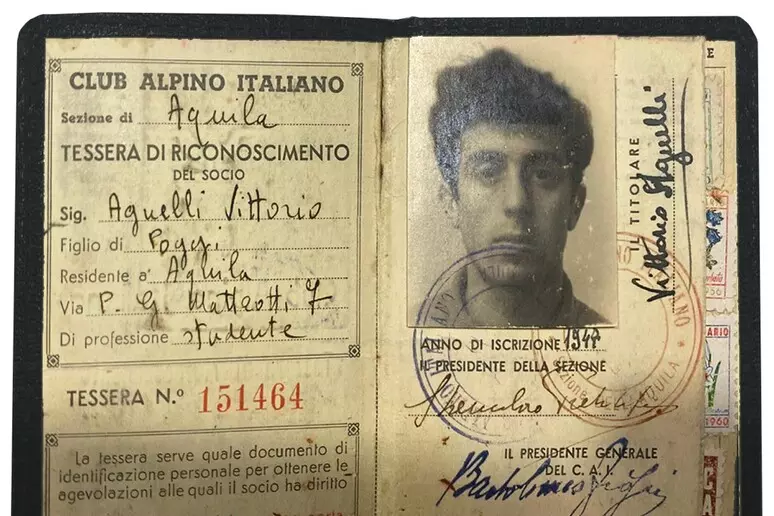 CLUB ALPINO ITALIANO
Sezione di Aquila
TESSERA DI RICONOSCIMENTO
DEL SOCIO
Sig. Agnelli Vittorio
Figlio di
Residente a' Aquila
Via P. G. Matteotti 7
Di professione studente
TESSERA N.º 151464
La tessera serve quale documento di
identificazione personale per ottenere le
agevolazioni alle quali il socio ha diritto
IL TITOLARE
Vittorio Agnelli
ANNO DI ISCRIZIONE 1947
IL PRESIDENTE DELLA SEZIONE
IL PRESIDENTE GENERALE
DEL C. A. I.
Bartolomeo Figari
AQUILA
E
1956
ARIO
1960